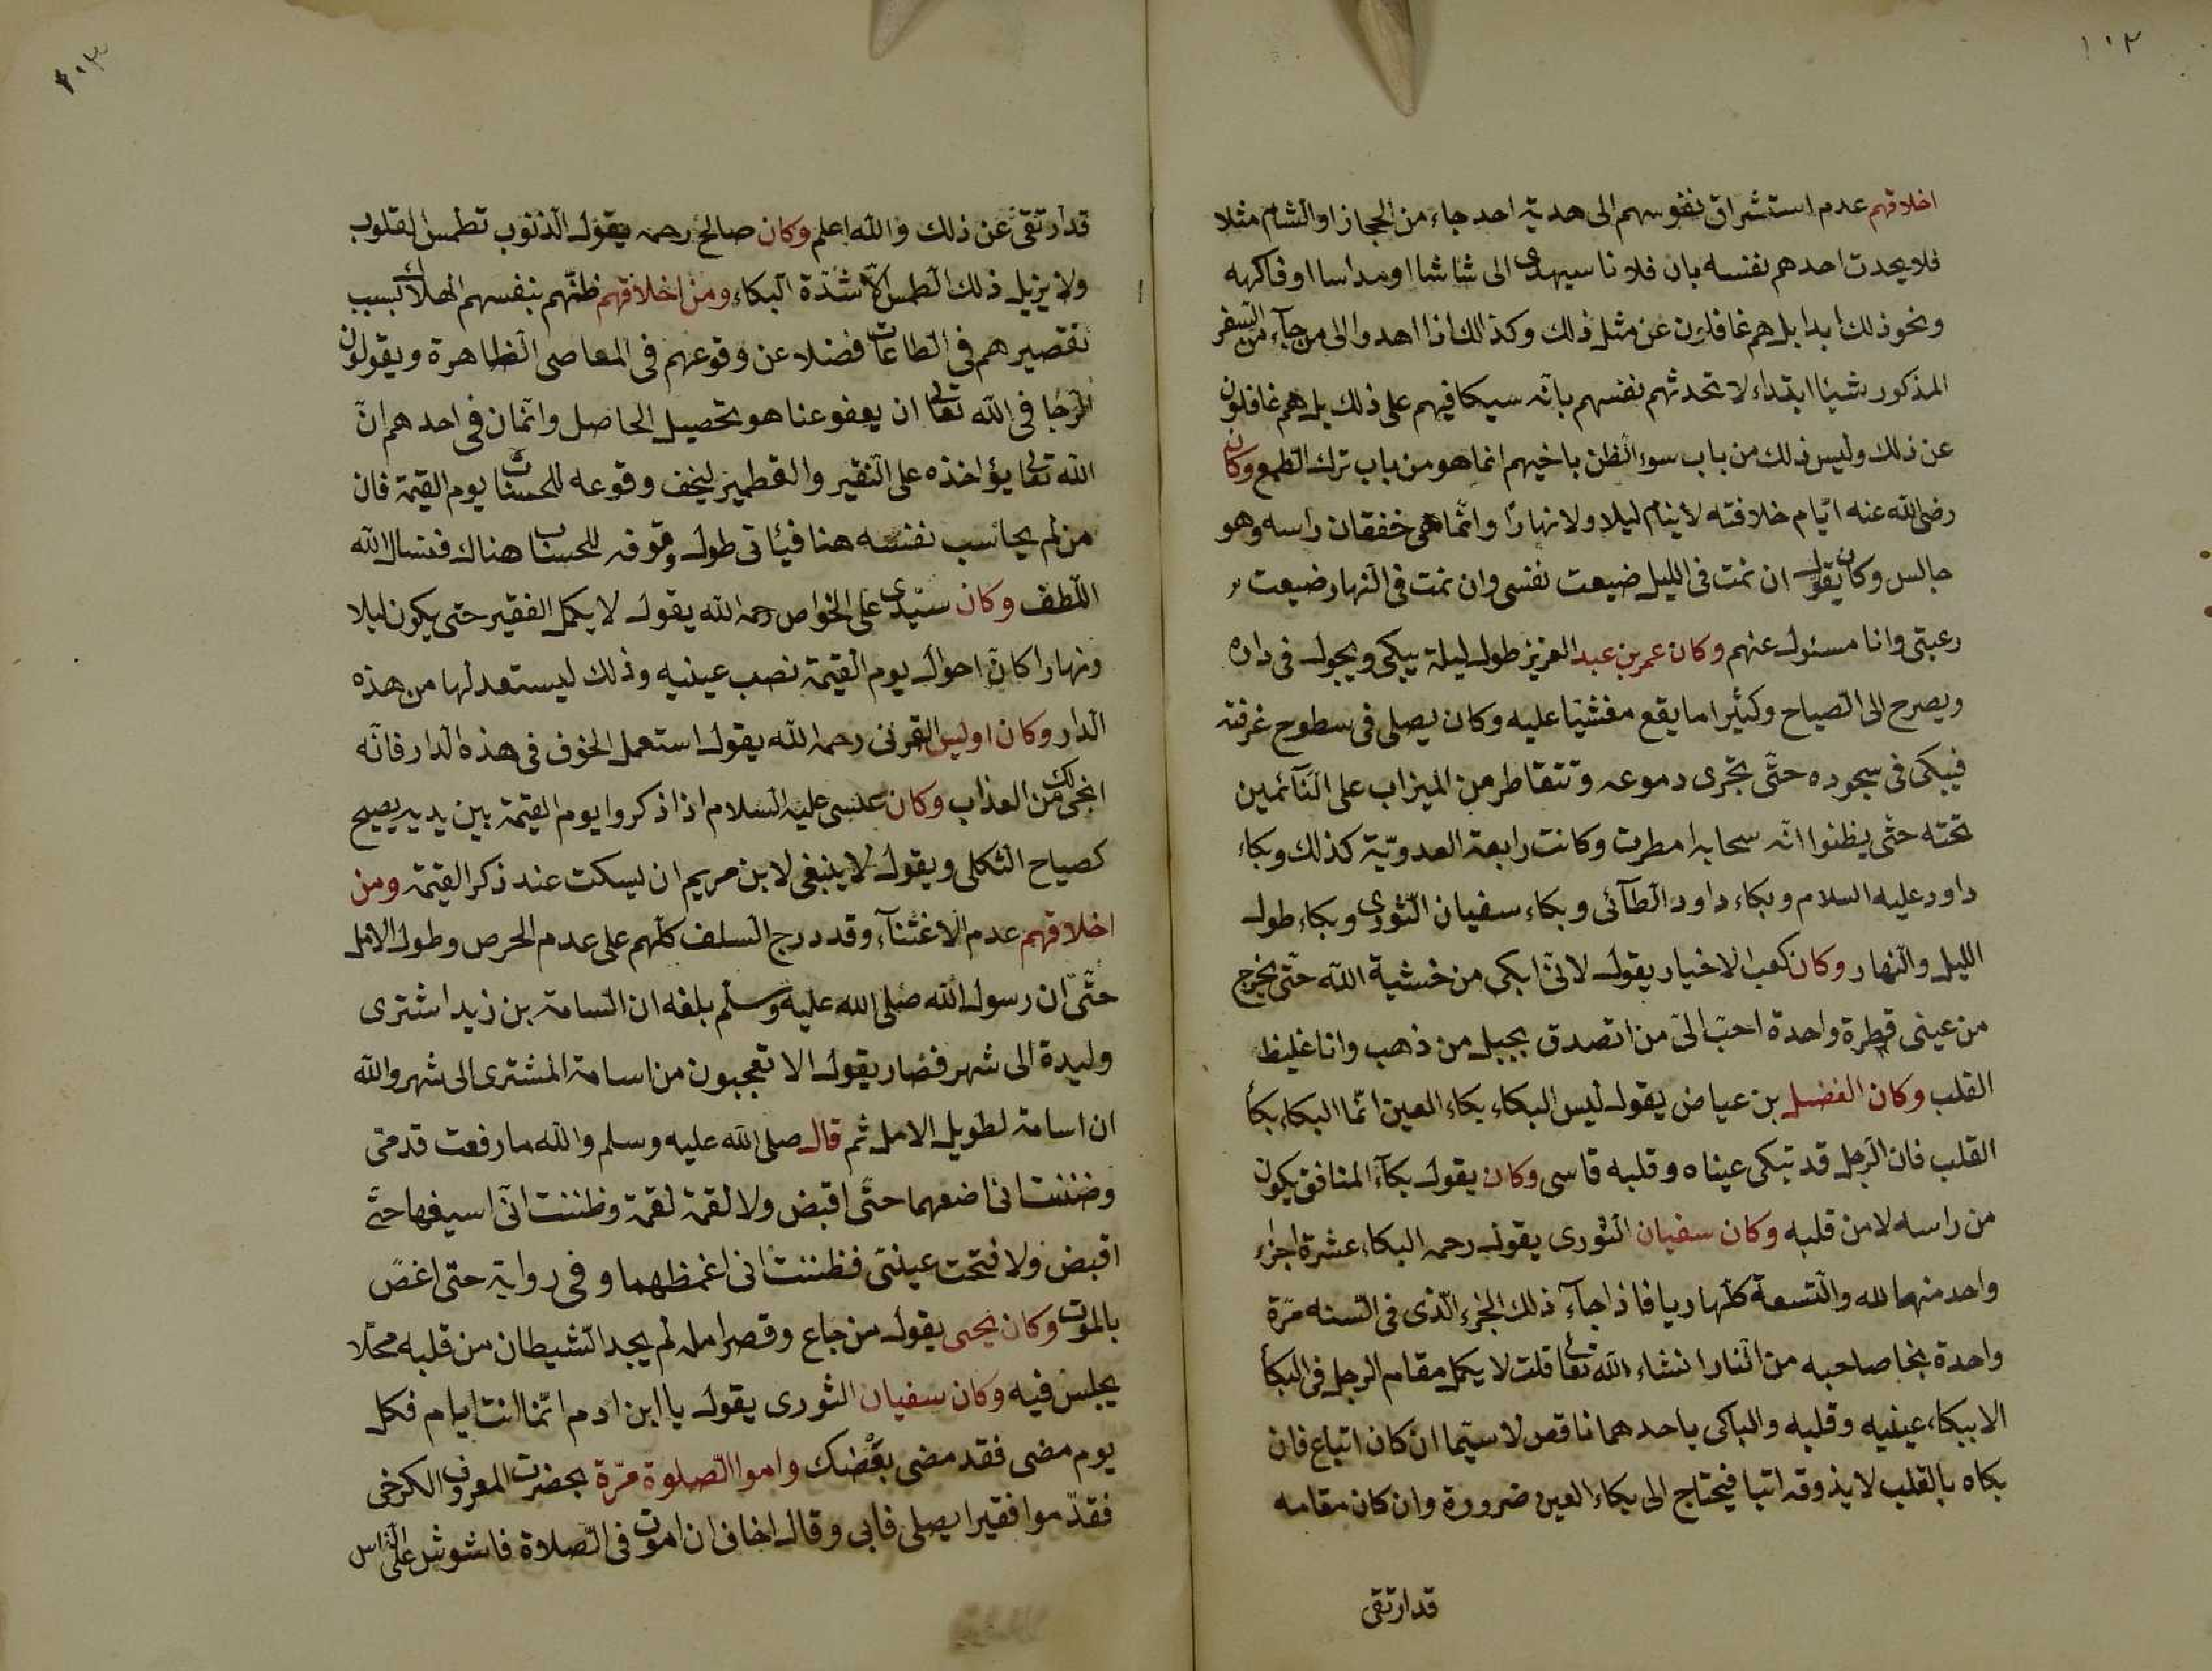 ١٠٢
اخلاقهم عدم استشراق نفوسهم الى هدية احد جاء من الحجاز او الشام مثلا
فلا يحدث احدهم نفسه بان فلانا سيهدى الى شاشا او مداسا او فاكهه
ونحو ذلك ابدا بل هم غافلون عن مثل ذلك وكذالك اذا اهدوا الى من جآء من السفر
المذكور شيئا ابتداء لا تحدثهم نفسهم بانّه سيكافيهم على ذلك بل هم غافلون
عن ذلك وليس ذلك من باب سوء الظن باخيهم انما هو من باب ترك الطمع وكان
رضى الله عنه ايّام خلافته لا ينام ليلا ولا نهارًا وانّما هى خفقان راسه وهو
جالس وكان يقول ان نمت فى الليل ضيعت نفسى وان نمت فى النهار ضيعت
رعبتى وانا مسئول عنهم وكان عمر بن عبد العزيز طول ليلة يبكى ويجول فى داره
ويصرح الى الصياح وكثيرا ما يقع مغشيّا عليه وكان يصلى فى سطوح غرفته
فيبكى فى سجوده حتّى تجرى دموعه وتتقاطر من الميزاب على النّآئمين
تحته حتّى يظنوا انّه سحابه امطرت وكانت رابعة العدويّية كذلك وبكاء
داود عليه السلام وبكاء داود الطآئى وبكاء سفيان الثّورى وبكاء طول
الليل والنهار وكان كعب الاخبار يقول لانّى ابكى من خشية الله حتّى يخرج
من عينى قطرة واحدة احبّ الىّ من اتصدق بجبل من ذهب وانا غليظ
القلب وكان الفضيل بن عياض يقول ليس البكاء بكاء العين انّما البكاء بكأ
القلب فان الرجل قد تبكى عيناه وقلبه قاسى وكان يقول بكآء المنافق يكون
من راسه لا من قلبه وكان سفيان الثورى يقول رحمه البكاء عشرة اجزء
واحد منها لله والتسعة كلّها ريا فاذا جآء ذلك الجزء الّذى فى السّنه مرّة
واحدة نجا صاحبه من النّار انشاء الله تعا قلت لا يكمل مقام الرجل فى البكأ
الا ببكاء عينيه وقلبه والباكى باحدهما ناقص لا سيّما ان كان اتباع فان
بكاه بالقلب لا يذوقه اتبا فيحتاج الى بكاء العين ضرورة وان كان مقامه
قدارتقى
١٠٣
قدارتقى عن ذلك والله اعلم وكان صالح رحمه يقول الذنوب تطمس القلوب
ولا يزيل ذلك الطمس الّا شدّة البكاء ومن اخلاقهم ظنّهم بنفسهم الهلاك بسبب
تقصيرهم فى الطاعات فضلا عن وقوعهم فى المعاصى الظاهرة ويقولون
الرجا فى الله تعالى ان يعفو عنا هو تحصيل الحاصل وانّمان فى احدهم انّ
الله تعالى يؤاخذه على النقير والقطمير ليخف وقوعه للحسنات يوم القيمة فان
من لم يحاسب نفسه هنا فيئاتى طول وقوفه للحساب هناك فنسال الله
اللطف وكان سيّدى على الخواص رحمه الله يقول لا يكمل الفقير حتى يكون ليلا
ونهارا كانّ احوال يوم القيمة نصب عينيه وذلك ليستعد لها من هذه
الدار وكان اوليس القرنى رحمه الله يقول استعمل الخوف فى هذه الدار فانّه
انجى لك من العذاب وكان عيسى عليه السلام اذا ذكروا يوم القيمة بين يديه يصيح
كصياح الثكلى ويقول لا ينبغى لابن مريم ان يسكت عند ذكر القيمة ومن
اخلاقهم عدم الاغتنآء وقد درج السلف كلّهم على عدم الحرص وطول الامل
حتّى ان رسول الله صلى الله عليه وسلم بلغه ان اسامة بن زيد اشترى
وليدة الى شهر فصار يقول الا تعجبون من اسامة المشترى الى شهر والله
ان اسامة لطويل الامل ثم قال صلى الله عليه وسلم والله ما رفعت قدمىّ
وضننت انى اضعهما حتّى اقبض ولا لقمة لقمة وظننت انّى اسيغها حتّى
اقبض ولا فتحت عينىّ فظننت انى اغمظهما وفى رواية حتى اغصّ
بالموت وكان يحيى يقول من جاع وقصر امله لم يجد الشيطان من قلبه محلّا
يجلس فيه وكان سفيان الثورى يقول يا ابن ادم انّما انت ايام فكل
يوم مضى فقد مضى بعضك واموا الصلوة مرّة بحضرت المعروف الكرخى
فقدّموا فقيرا يصلى فابى وقال اخاف ان اموت فى الصّلاة فاشوش على النّاس